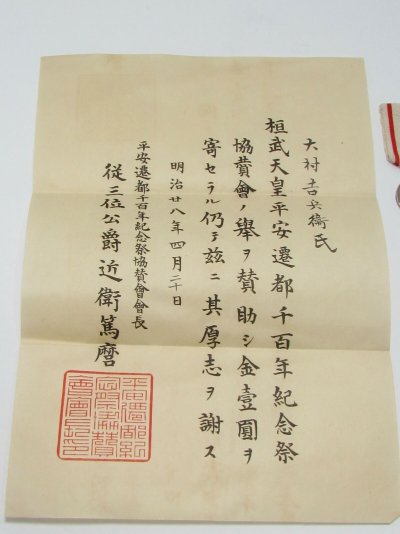 大村吉兵衛氏
桓武天皇平安遷都千百年紀念祭
協賛會ノ舉ヲ賛助シ金壹圓ヲ
寄セラル仍テ玆ニ其厚志ヲ謝ス
明治廿八年四月二十日
平安遷都千百年紀念祭協賛會會長
從三位公爵近衛篤麿